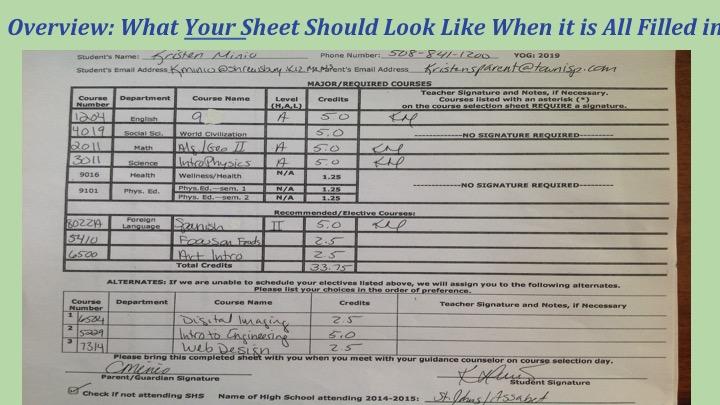 Overview: What Your Sheet Should Look Like When it is All Filled in
Student's Name: Kristen Minio Phone Number: 508-841-1200 YOG: 2019
Student's Email Address Kminio@shrewsbury.k12.ma Parent's Email Address Kristensparent@townisp.com
MAJOR/REQUIRED COURSES
Course Number Department Course Name Level (H,A,L) Credits Teacher Signature and Notes, if Necessary. Courses listed with an asterisk (*) on the course selection sheet REQUIRE a signature.
1204 English 9 A 5.0 KM
4019 Social Sci. World Civilization 5.0 NO SIGNATURE REQUIRED
2011 Math Alg/Geo II A 5.0 KM
3011 Science Intro Physics A 5.0 KM
9016 Health Wellness/Health N/A 1.25
9101 Phys. Ed. Phys.Ed.—sem. 1 N/A 1.25 NO SIGNATURE REQUIRED
Phys.Ed.—sem. 2 N/A 1.25
Recommended/Elective Courses:
8022A Foreign Language Spanish II 5.0 KM
5410 Focus on Foods 2.5
6500 Art Intro 2.5
Total Credits 33.75
ALTERNATES: If we are unable to schedule your electives listed above, we will assign you to the following alternates.
Please list your choices in the order of preference.
Course Number Department Course Name Credits Teacher Signature and Notes, if Necessary
1 6504 Digital Imaging 2.5
2 5229 Intro to Engineering 5.0
3 7314 Web Design 2.5
Please bring this completed sheet with you when you meet with your guidance counselor on course selection day.
Parent/Guardian Signature Student Signature
Check if not attending SHS Name of High School attending 2014-2015: St. Johns/Assabet